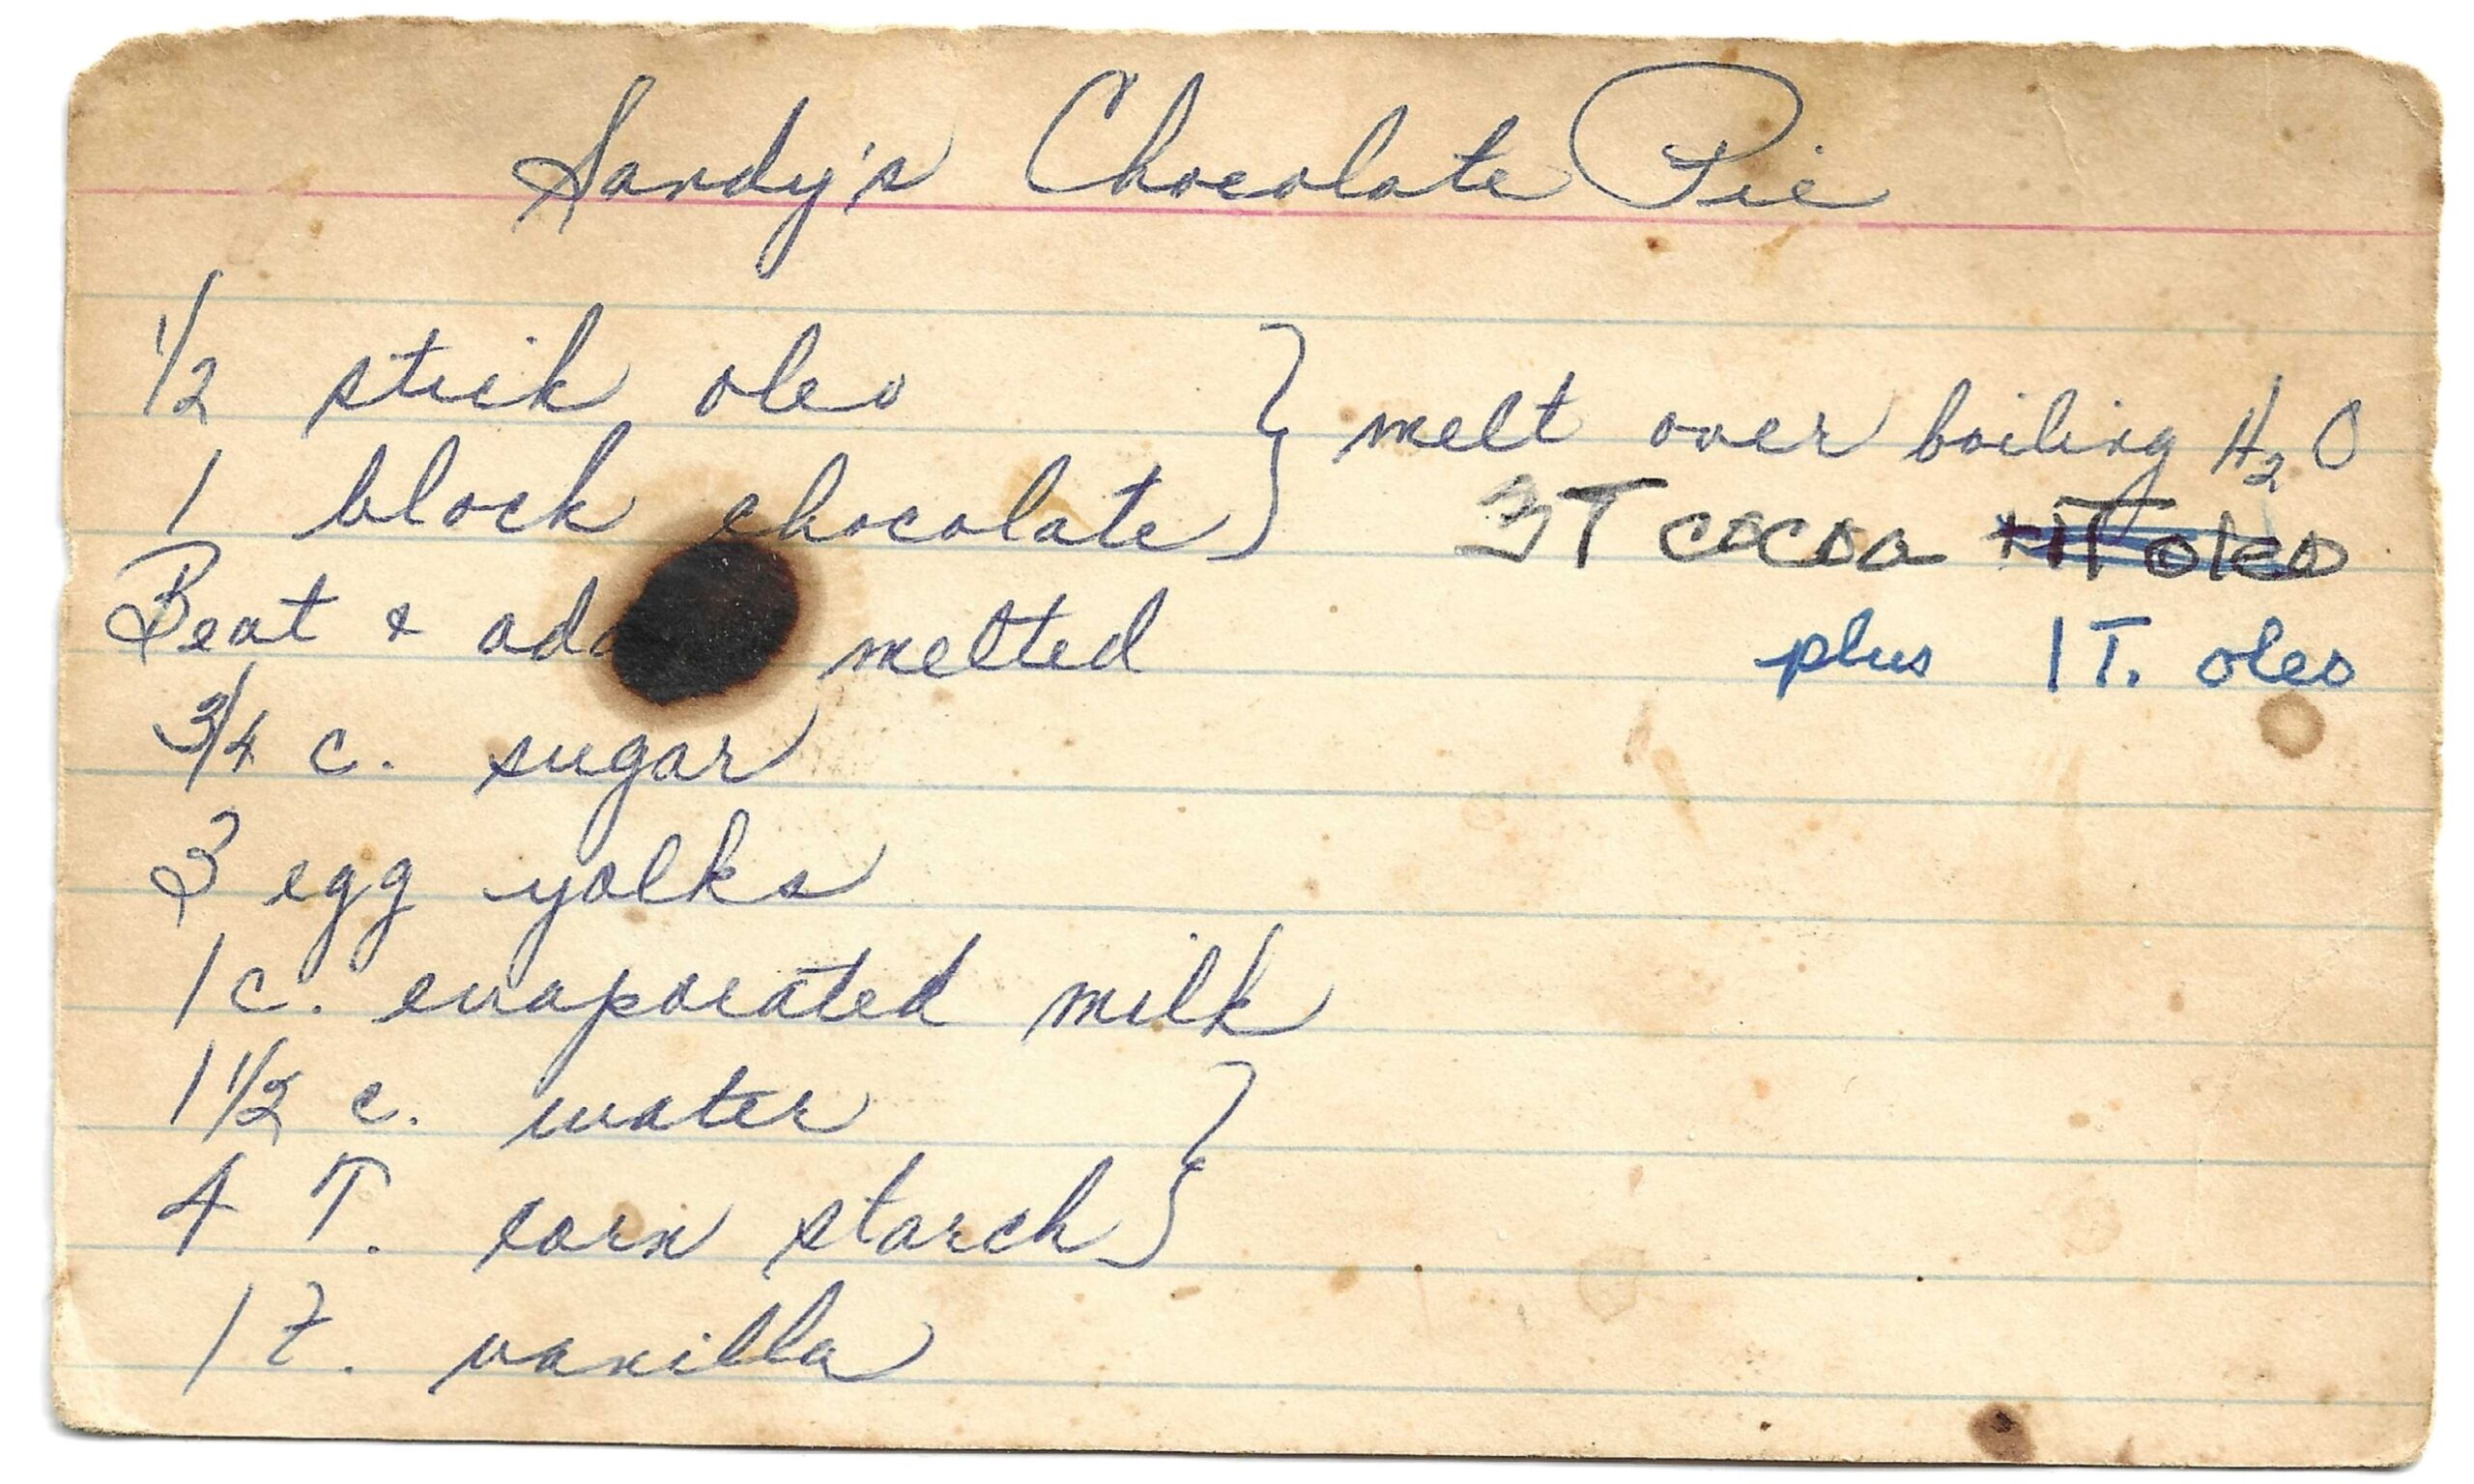 Sandy's Chocolate Pie
1/2 stick oleo
1 block chocolate } melt over boiling H₂O
3T cocoa +1T oleo
Beat & add melted
plus 1 T. oleo
3/4 c. sugar
3 egg yolks
1 c. evaporated milk
1 1/2 c. water
4 T. corn starch }
1 t. vanilla